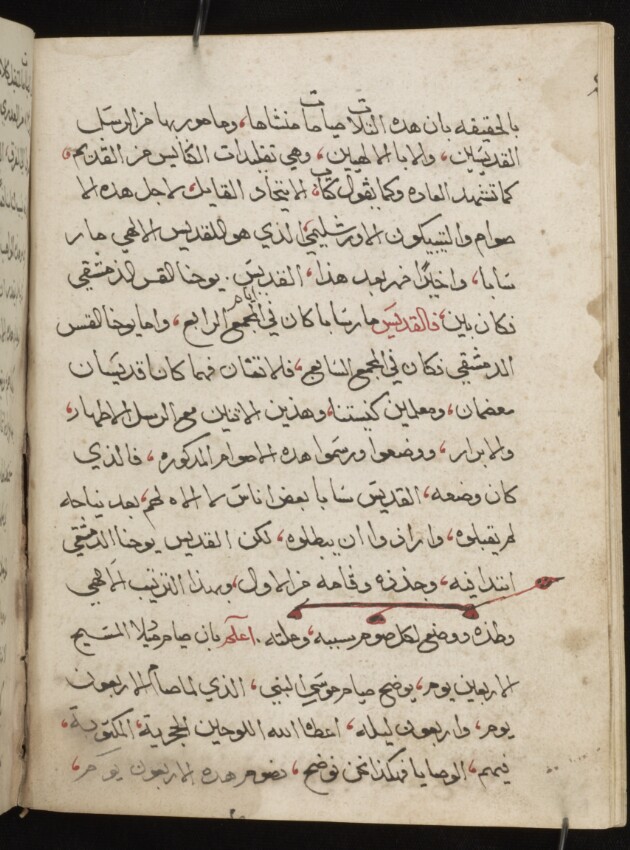 بالحقيقه بان هده التلات صيامات منشاها، وما مور بها من الرسل
القديسين، والابا الالهيين، وهي تقليدات الكنايس من القديم،
كما تشهد العاده وكما يقول كتاب الاتحاد القايل، لاجل هده الا
صوام والتيبيكون الاورشليمي الذي هو للقديس الالهي مار
سابا، واخيرًا من بعد هذا، القديس يوحنا القس الدمشقي
فكان بين، فالقديس مار سابا كان في ايام المجمع الرابع، واما يوحنا القس
الدمشقي فكان في المجمع السابع، فلا تشك فهما كان قديسان
معضمان، ومعلمين كنيستنا، وهذين الاتنين مع الرسل الاطهار،
والابرار، ووضعوا ورسموا هده الاصوام المدكوره، فالذي
كان وضعه، القديس سابا بعض اناس لا الاه لهم، بعد نياحه
لم يقبلوه، وارادوا ان يبطلوه، لكن القديس يوحنا الدمشقي
ابتدا فيه، وجدده وقامه من الاول، وبهذا الترتيب الالهي
وطده ووضع لكل صوم سببه، وعلته. اعلم بان صيام ميلاد المسيح
الاربعين يوم، يوضح صيام موسي النبي، الذي لما صام الاربعون
يوم، واربعون ليله، اعطاه الله اللوحين الحجرية، المكتوبة،
فيهم، الوصايا فهكذا نحن نوضح، بصوم هده الاربعون يوم،